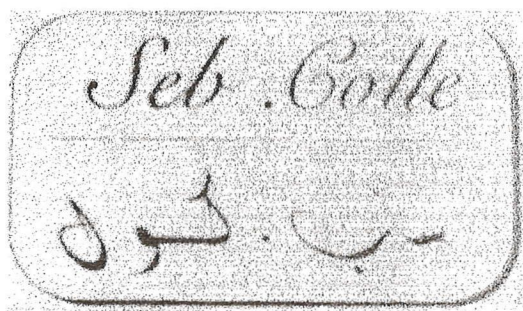 Seb .Colle
سب . كول